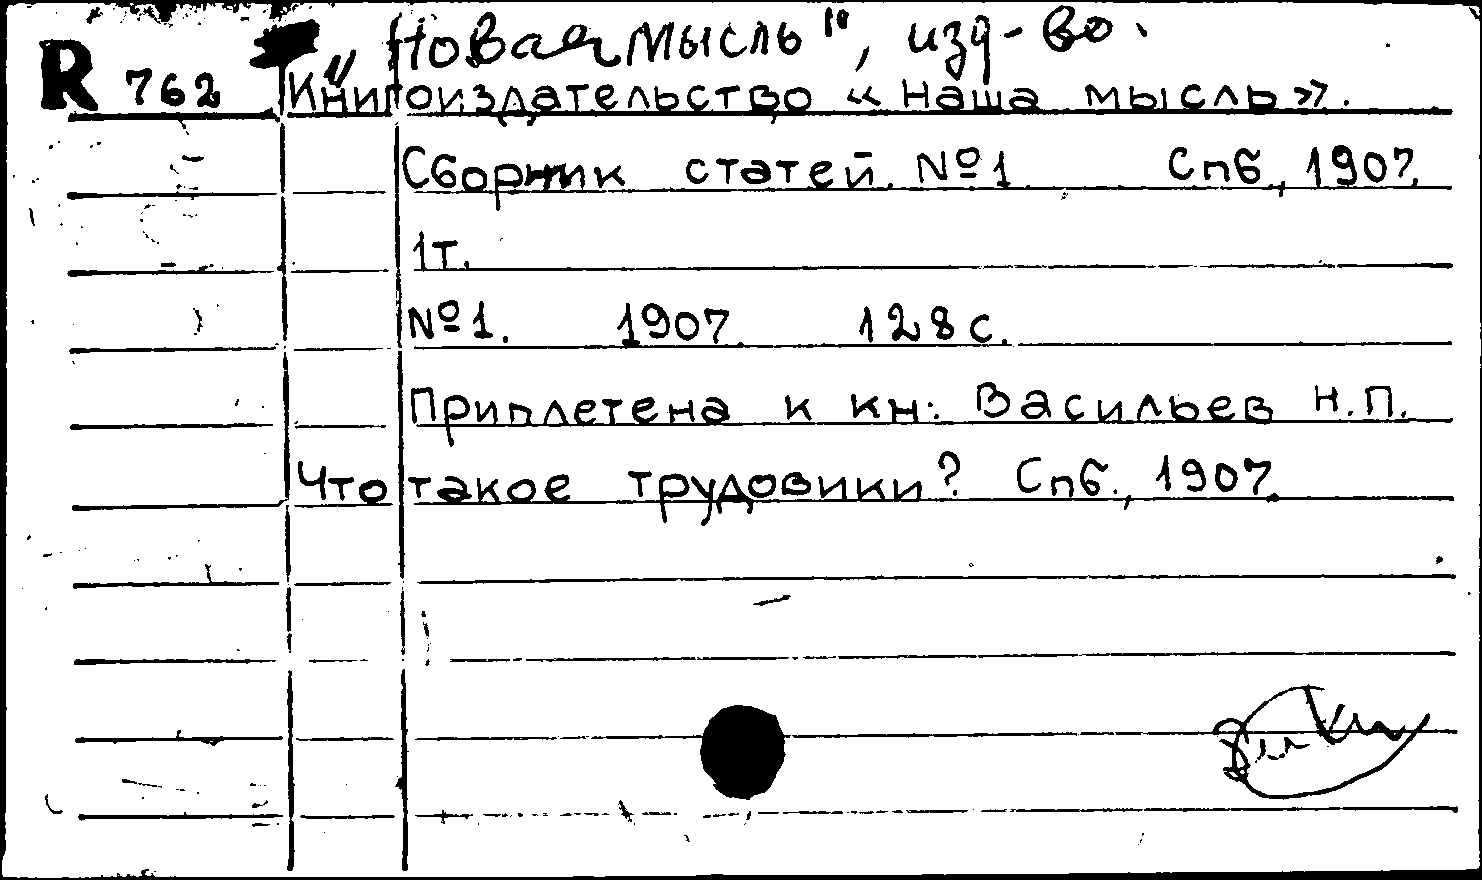 „Новая мысль", изд-во.
R 762 Книгоиздательство «Наша мысль».
Сборник статей. №1 Спб., 1907.
1т.
№1. 1907. 128 с.
Приплетена к кн: Васильев Н.П.
Что такое трудовики? Спб., 1907.